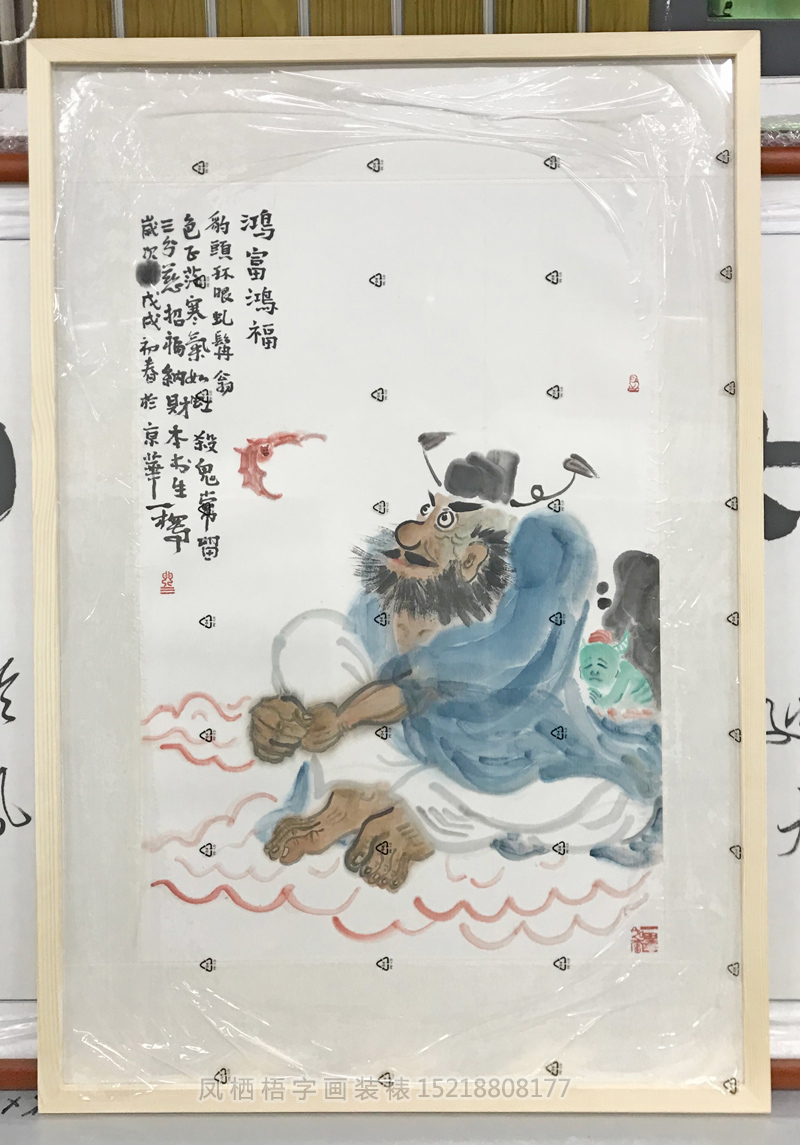 鴻富鴻福
豹頭环眼虬髯翁
色正芒寒氣如虹殺鬼常留
三分慈招福納財本书生
歲次戊戌初春於京華一
凤栖梧字画装裱15218808177